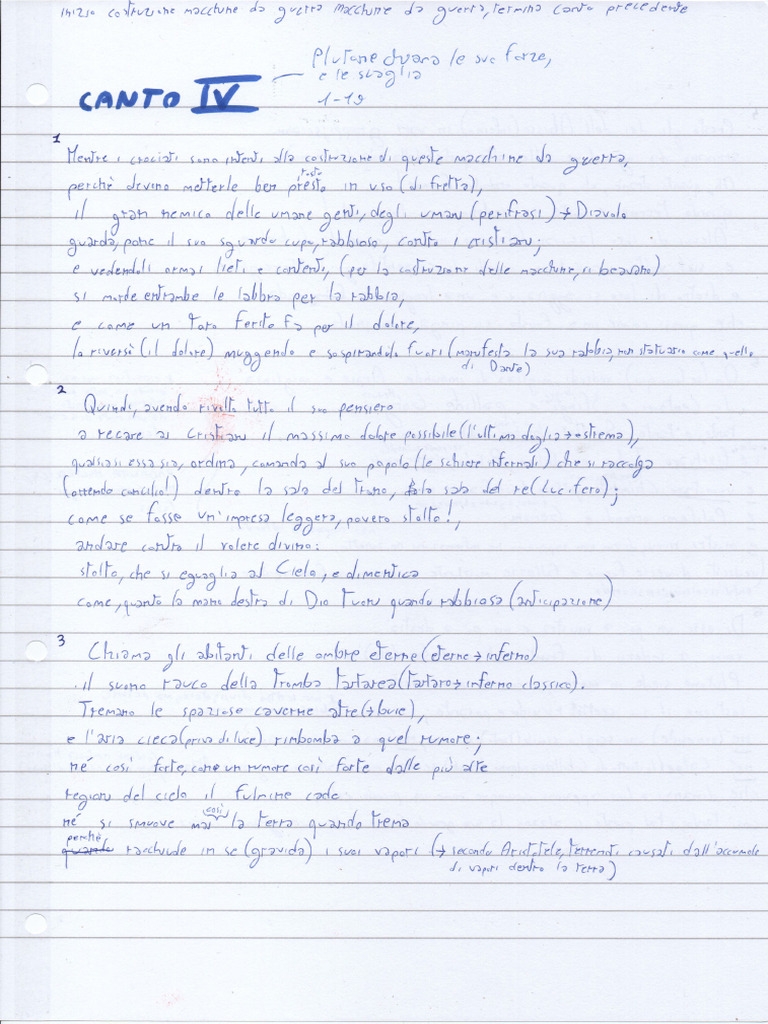 inizio costruzione macchine da guerra macchine da guerra, termina canto precedente
Plutone chiama le sue forze,
e le scaglia
1-19
CANTO IV
1
Mentre i crociati sono intenti alla costruzione di queste macchine da guerra,
tosto
perchè devino metterle ben presto in uso (di fretta),
il gran nemico delle umane genti, degli umani (perifrasi) → Diavolo
guarda, pone il suo sguardo cupo, rabbioso, contro i cristiani;
e vedendoli ormai lieti e contenti, (per la costruzione delle macchine, si beavano)
si morde entrambe le labbra per la rabbia,
e come un toro ferito fa per il dolore,
lo riversò (il dolore) muggendo e sospirandolo fuori (manifesta la sua rabbia, non statuario come quello
di Dante)
2
Quindi, avendo rivolto tutto il suo pensiero
a recare ai Cristiani il massimo dolore possibile (l'ultima doglia → estrema),
qualsiasi essa sia, ordina, comanda al suo popolo (le schiere infernali) che si raccolga
(orrendo concilio!) dentro la sala del trono, sala del re (Lucifero);
come se fosse un'impresa leggera, povero stolto!,
andare contro il volere divino:
stolto, che si eguaglia al Cielo, e dimentica
come, quanto la mano destra di Dio tuoni quando rabbiosa (anticipazione)
3
Chiama gli abitanti delle ombre eterne (eterne → inferno)
il suono rauco della tromba tartarea (tartaro → inferno classico).
Tremano le spaziose caverne atre (→ buie),
e l'aria cieca (priva di luce) rimbomba a quel rumore;
né così forte, con un rumore così forte dalle più alte
regioni del cielo il fulmine cade
così
né si smuove mai la terra quando trema
perchè
quando racchiude in se (gravida) i suoi vapori (→ secondo Aristotele, terremoti causati dall'accumulo
di vapori dentro la terra)